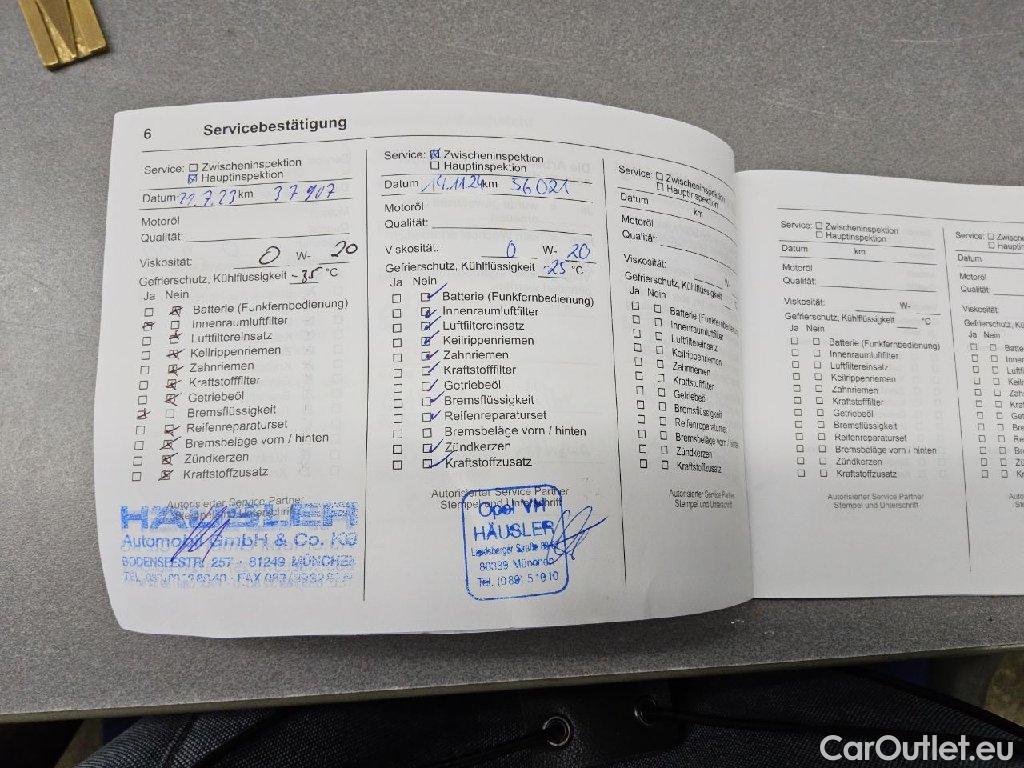 6 Servicebestätigung
Service: Zwischeninspektion
Hauptinspektion
Datum 21.7.23 km 37907
Motoröl
Qualität:
Viskosität: 0 W- 20
Gefrierschutz, Kühlflüssigkeit -35 °C
Ja Nein
Batterie (Funkfernbedienung)
Innenraumluftfilter
Luftfiltereinsatz
Keilrippenriemen
Zahnriemen
Kraftstofffilter
Getriebeöl
Bremsflüssigkeit
Reifenreparaturset
Bremsbeläge vorn / hinten
Zündkerzen
Kraftstoffzusatz
Autorisierter Service Partner
HÄUSLER
Automobil GmbH & Co. KG
BODENSEESTR. 257 - 81249 MÜNCHEN
Service: Zwischeninspektion
Hauptinspektion
Datum 14.11.24 km 56021
Motoröl
Qualität:
Viskosität: 0 W- 20
Gefrierschutz, Kühlflüssigkeit -25 °C
Ja Nein
Batterie (Funkfernbedienung)
Innenraumluftfilter
Luftfiltereinsatz
Keilrippenriemen
Zahnriemen
Kraftstofffilter
Getriebeöl
Bremsflüssigkeit
Reifenreparaturset
Bremsbeläge vorn / hinten
Zündkerzen
Kraftstoffzusatz
Autorisierter Service Partner
Stempel und Unterschrift
Opel VH
HÄUSLER
Landsberger Straße
80339 München
Service: Zwischeninspektion
Hauptinspektion
Datum km
Motoröl
Qualität:
Viskosität: W-
Gefrierschutz, Kühlflüssigkeit °C
Ja Nein
Batterie (Funkfernbedienung)
Innenraumluftfilter
Luftfiltereinsatz
Keilrippenriemen
Zahnriemen
Kraftstofffilter
Getriebeöl
Bremsflüssigkeit
Reifenreparaturset
Bremsbeläge vorn / hinten
Zündkerzen
Kraftstoffzusatz
Autorisierter Service Partner
Stempel und Unterschrift
Service: Zwischeninspektion
Hauptinspektion
Datum km
Motoröl
Qualität:
Viskosität: W-
Gefrierschutz, Kühlflüssigkeit °C
Ja Nein
Batterie (Funkfernbedienung)
Innenraumluftfilter
Luftfiltereinsatz
Keilrippenriemen
Zahnriemen
Kraftstofffilter
Getriebeöl
Bremsflüssigkeit
Reifenreparaturset
Bremsbeläge vorn / hinten
Zündkerzen
Kraftstoffzusatz
Autorisierter Service Partner
Stempel und Unterschrift
Service:
Datum
Motoröl
Qualität:
Viskosität:
Gefrierschutz,
Ja Nein
CarOutlet.eu